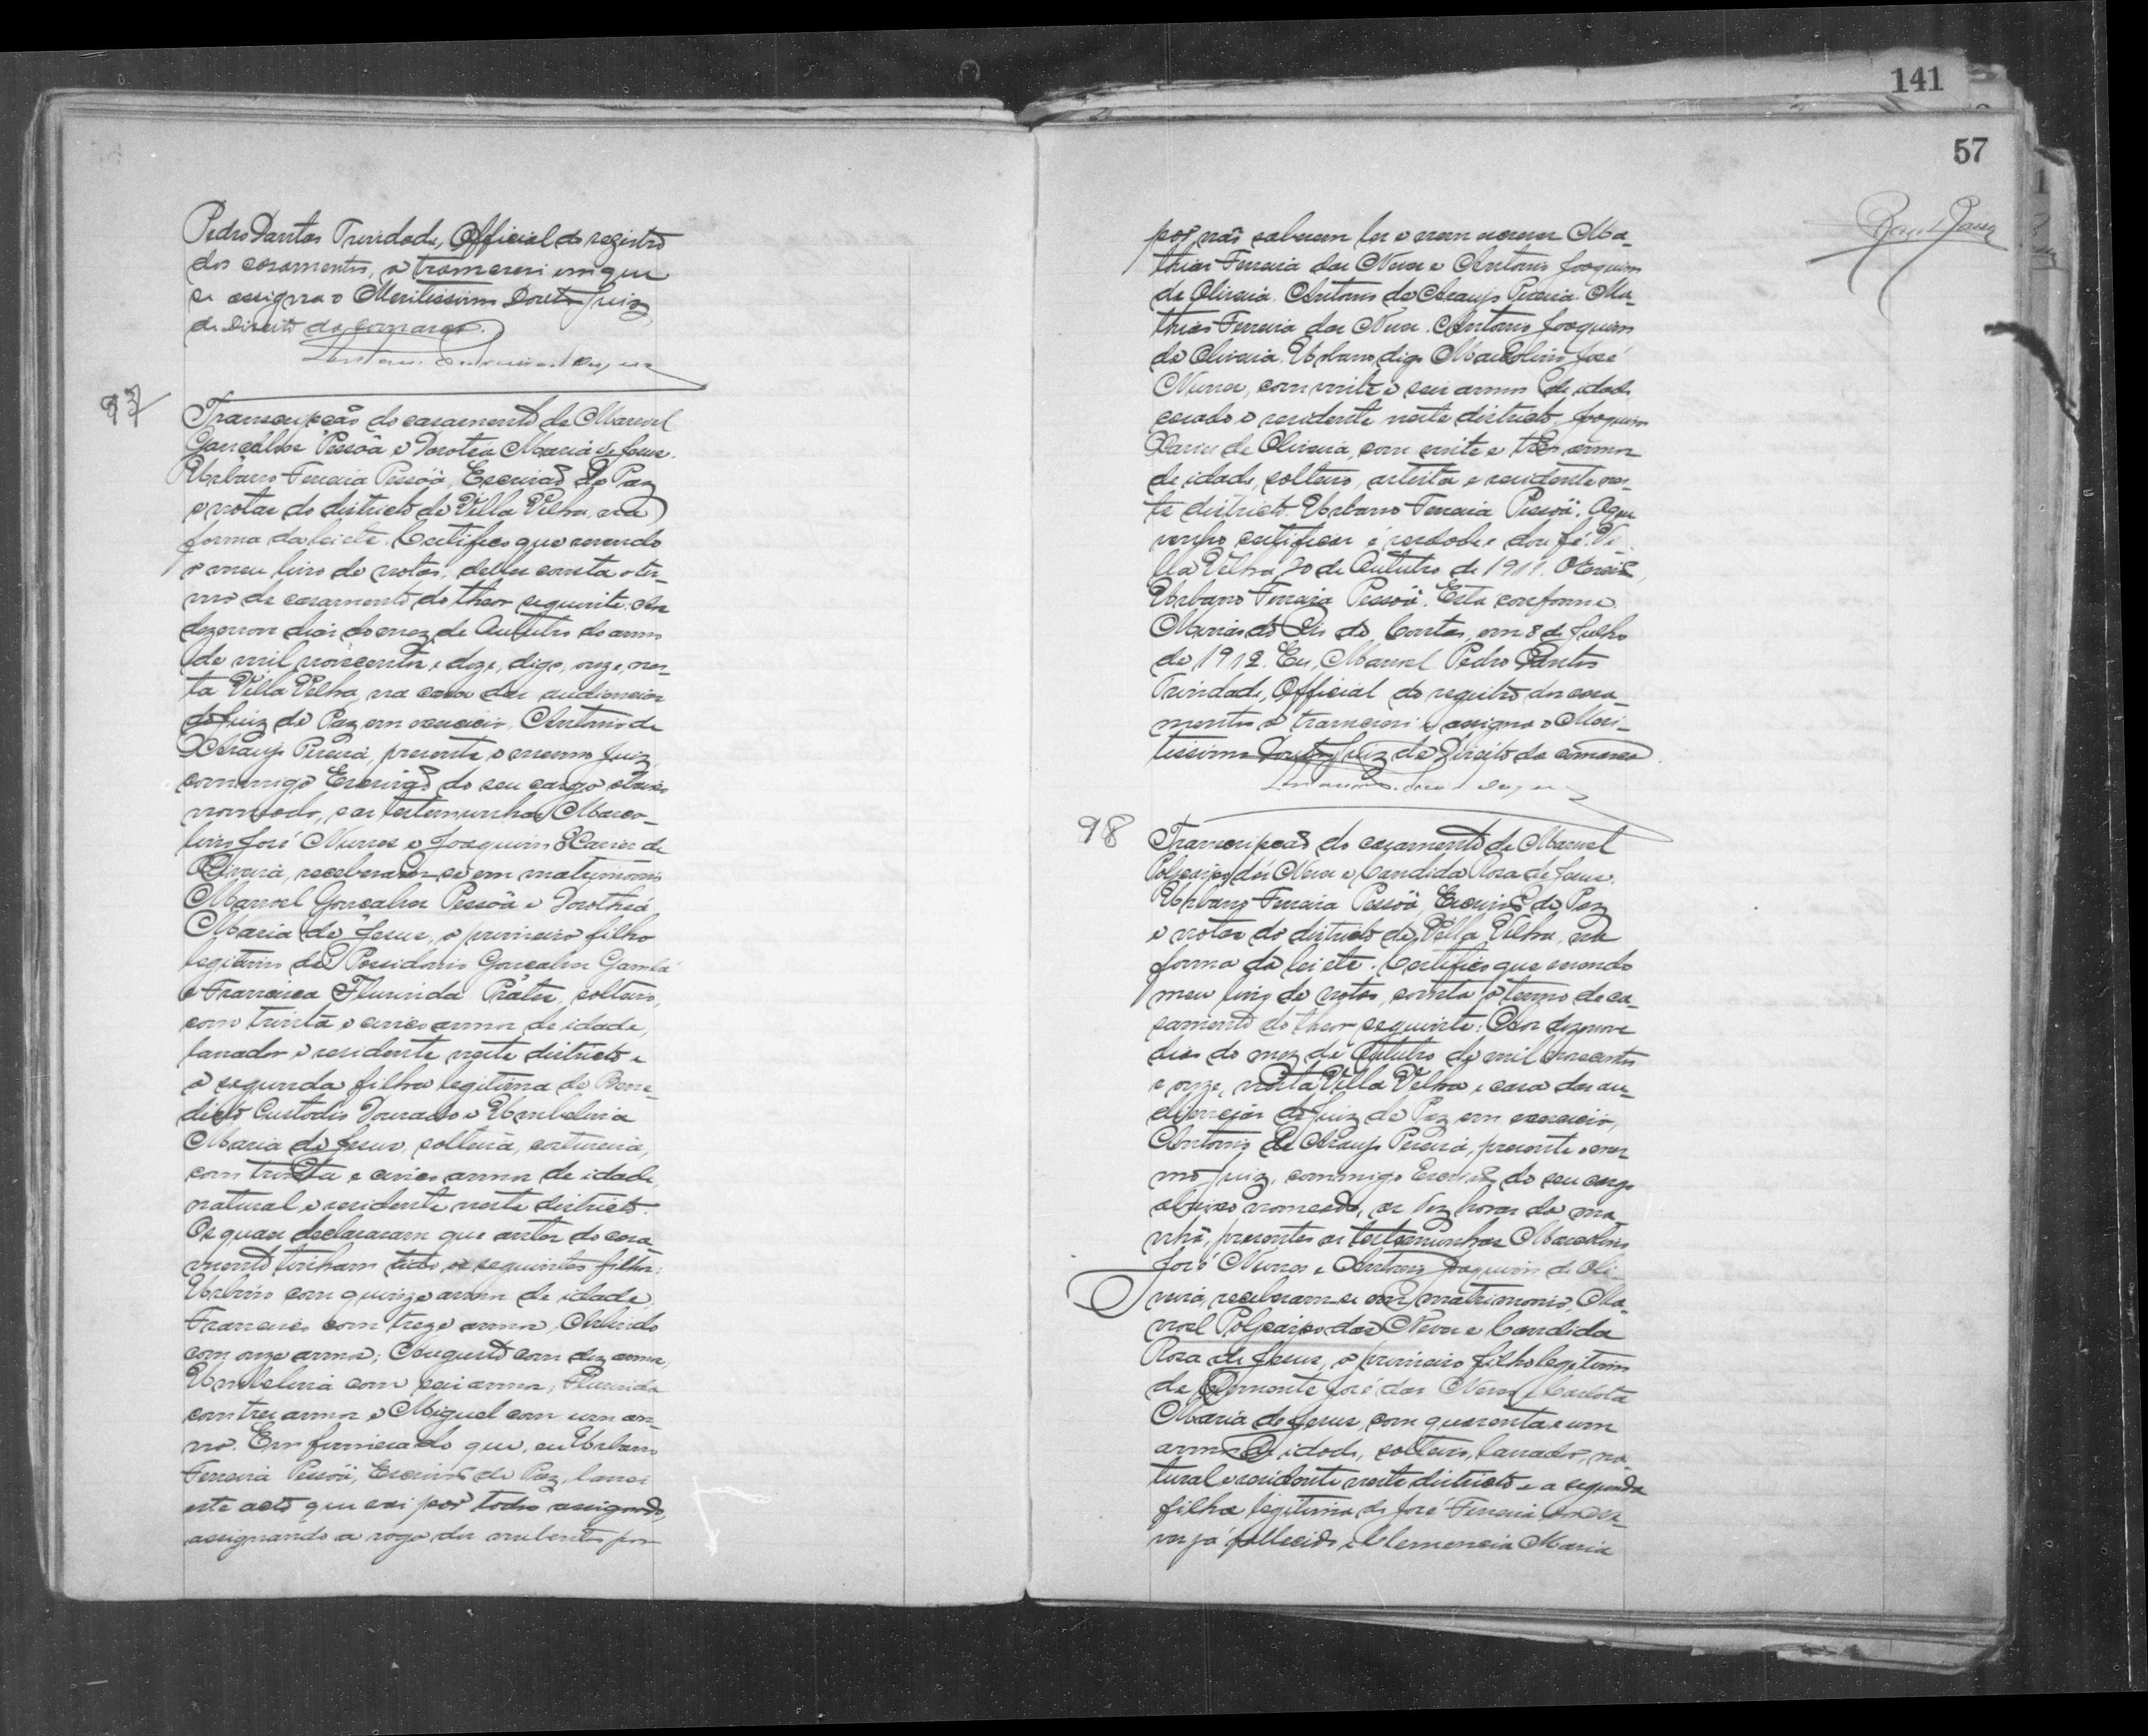 141
57
Pedro Dantas Trindade, Official do registro
dos casamentos, a transcrevi em que
se assigna o Meritissimo Doutor Juiz
de Direito da comarca.
97
Transcripção do casamento de Manoel
Gonçalves Pessôa e Dorotéa Maria de Jesus.
Urbano Ferreira Pessôa, Escrivão de Paz
e notas do districto de Villa Velha, na
forma da lei etc. Certifico que revendo
o meu livro de notas, delle consta o ter-
mo de casamento do theor seguinte: Aos
dezenove dias do mez de Outubro do anno
de mil novecentos e doze, digo, onze, nes-
ta Villa Velha, na casa das audiencias
do Juiz de Paz em exercicio, Antonio de
Araujo Pereira, presente o mesmo Juiz,
commigo Escrivão do seu cargo abaixo
nomeado, e as testemunhas Marco-
lino José Nunes e Joaquim Xavier de
Oliveira, receberam-se em matrimonio
Manoel Gonçalves Pessôa e Dorothéa
Maria de Jesus, o primeiro filho
legitimo de Possidonio Gonçalves Gambá
e Francisca Flurinda Prates, solteiro,
com trinta e cinco annos de idade,
lavrador e residente neste districto e
a segunda filha legitima de Bene-
dicto Custodio Dourado e Umbelina
Maria de Jesus, solteira, costureira,
com trinta e cinco annos de idade,
natural e residente neste districto.
Os quaes declararam que antes do casa-
mento tinham tido os seguintes filhos:
Urbino com quinze annos de idade,
Francisco com treze annos, Arlindo
com onze annos; Augusto com dez annos,
Umbelina com seis annos; Flurinda
com tres annos e Miguel com um an-
no. Em firmeza do que, eu Urbano
Ferreira Pessôa, Escrivão de Paz, lavrei
este acto que vai por todos assignado,
assignando a rogo dos nubentes por
por não saberem ler e nem escrever Ma-
thias Ferreira das Neves e Antonio Joaquim
de Oliveira. Antonio de Araujo Pereira. Ma-
thias Ferreira das Neves. Antonio Joaquim
de Oliveira. Urbano digo Marcolino José
Nunes, com vinte e seis annos de idade,
casado e residente neste districto. Joaquim
Xavier de Oliveira, com vinte e tres annos
de idade, solteiro, artista e residente nes-
te districto. Urbano Ferreira Pessôa. O que
venho certificar é verdade e dou fé. Vi-
lla Velha, 20 de Outubro de 1911. O Escrivão,
Urbano Ferreira Pessôa. Está conforme.
Minas do Rio de Contas, em 8 de Julho
de 1912. Eu, Manoel Pedro Dantas
Trindade, Official do registro dos casa-
mentos o transcrevi e assigna o Meri-
tissimo Doutor Juiz de Direito da comarca.
98
Transcripção do casamento de Manoel
Polycarpo das Neves e Candida Rosa de Jesus.
Urbano Ferreira Pessôa, Escrivão de Paz
e notas do districto de Villa Velha, na
forma da lei etc. Certifico que revendo
meu livro de notas, consta o termo de ca-
samento do theor seguinte: Aos dezenove
dias do mez de Outubro de mil novecentos
e onze, nesta Villa Velha e casa das au-
diencias do Juiz de Paz em exercicio,
Antonio de Araujo Pereira, presente o mes-
mo Juiz, commigo Escrivão do seu cargo
abaixo nomeado, as dez horas da ma-
nhã, presentes as testemunhas Marcolino
José Nunes e Antonio Joaquim de Oli-
veira, receberam-se em matrimonio, Ma-
noel Polycarpo das Neves e Candida
Rosa de Jesus, o primeiro filho legitimo
de Clemente José das Neves e Carlota
Maria de Jesus, com quarenta e um
annos de idade, solteiro, lavrador, na-
tural e residente neste districto e a segunda
filha legitima de José Ferreira
já fallecido e Clemencia Maria